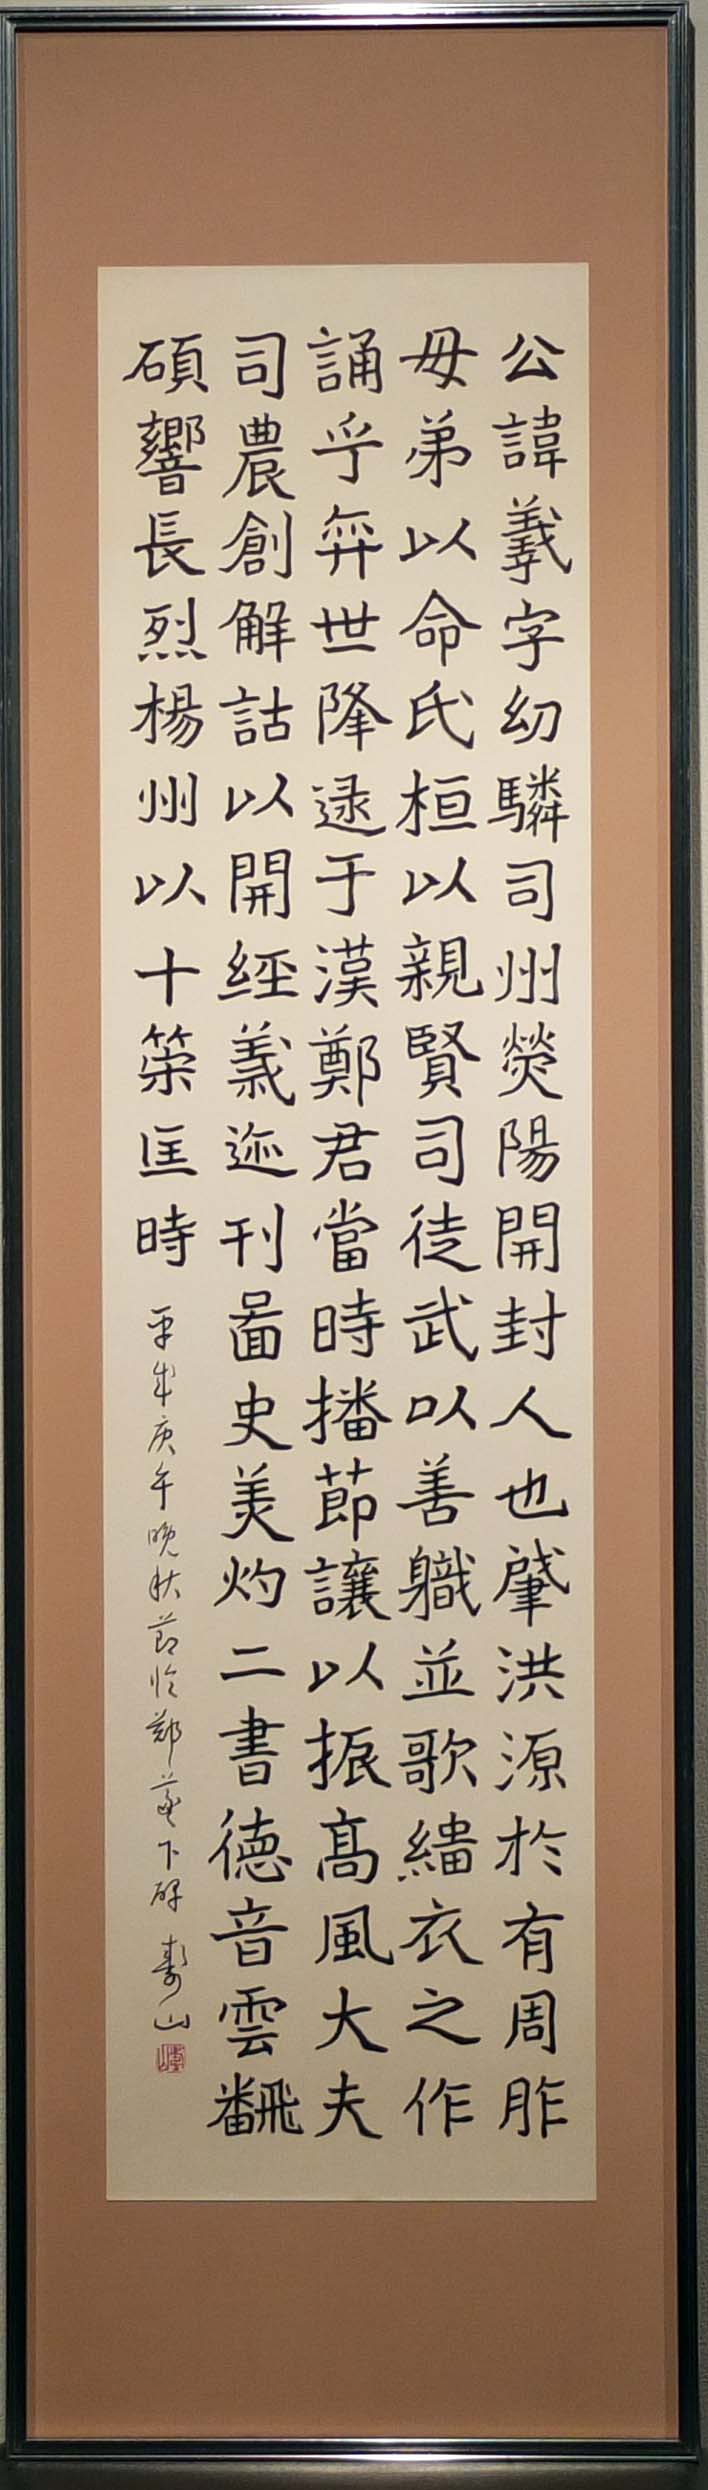 公諱羲字幼驎司州熒陽開封人也肇洪源於有周胙
母弟以命氏桓以親賢司徒武以善軄並歌緇衣之作
誦乎弈世降逮于漢鄭君當時播節讓以振高風大夫
司農創解詁以開經義迹刊啚史美灼二書德音雲飜
碩響長烈楊州以十策匡時
平成庚午晩秋節臨鄭羲下碑 壽山